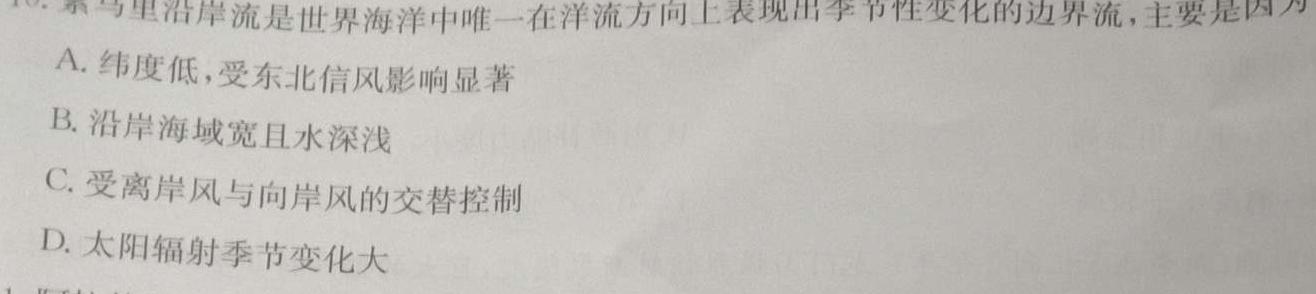 10. 索马里沿岸流是世界海洋中唯一在洋流方向上表现出季节性变化的边界流,主要是因为
A. 纬度低,受东北信风影响显著
B. 沿岸海域宽且水深浅
C. 受离岸风与向岸风的交替控制
D. 太阳辐射季节变化大